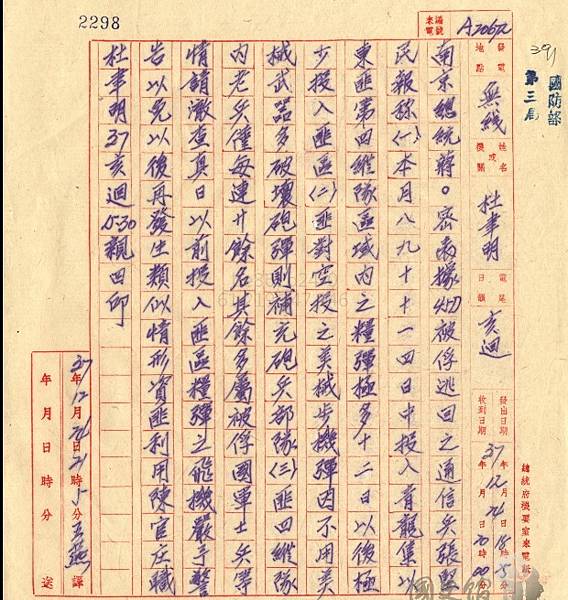 2298
來電編號
A70672
391
國防部
第三局
總統府機要室來電紙
發電地點
無綫
姓名或機關
杜聿明
電尾日韻
亥迴
發出日期
37年12月24日18時5分
收到日期
37年12月24日20時00分
南京總統蔣。密。據灼被俘逃回之通信兵張堅
民報稱(一)本月八九十十一四日中投入青龍集以
東匪第四縱隊區域內之糧彈極多十二日以後極
少投入匪區(二)匪對空投之美械步機彈因不用美
械武器多破壞砲彈則補充砲兵部隊(三)匪四縱隊
內老兵僅每連廿餘名其餘多屬被俘國軍士兵等
情請澈查真日以前投入匪區糧彈之飛機嚴予警
告以免以後再發生類似情形資匪利用陳官庄職
杜聿明37亥迴1530親田印
37年12月24日21時5分王燕譯
年月日時分送